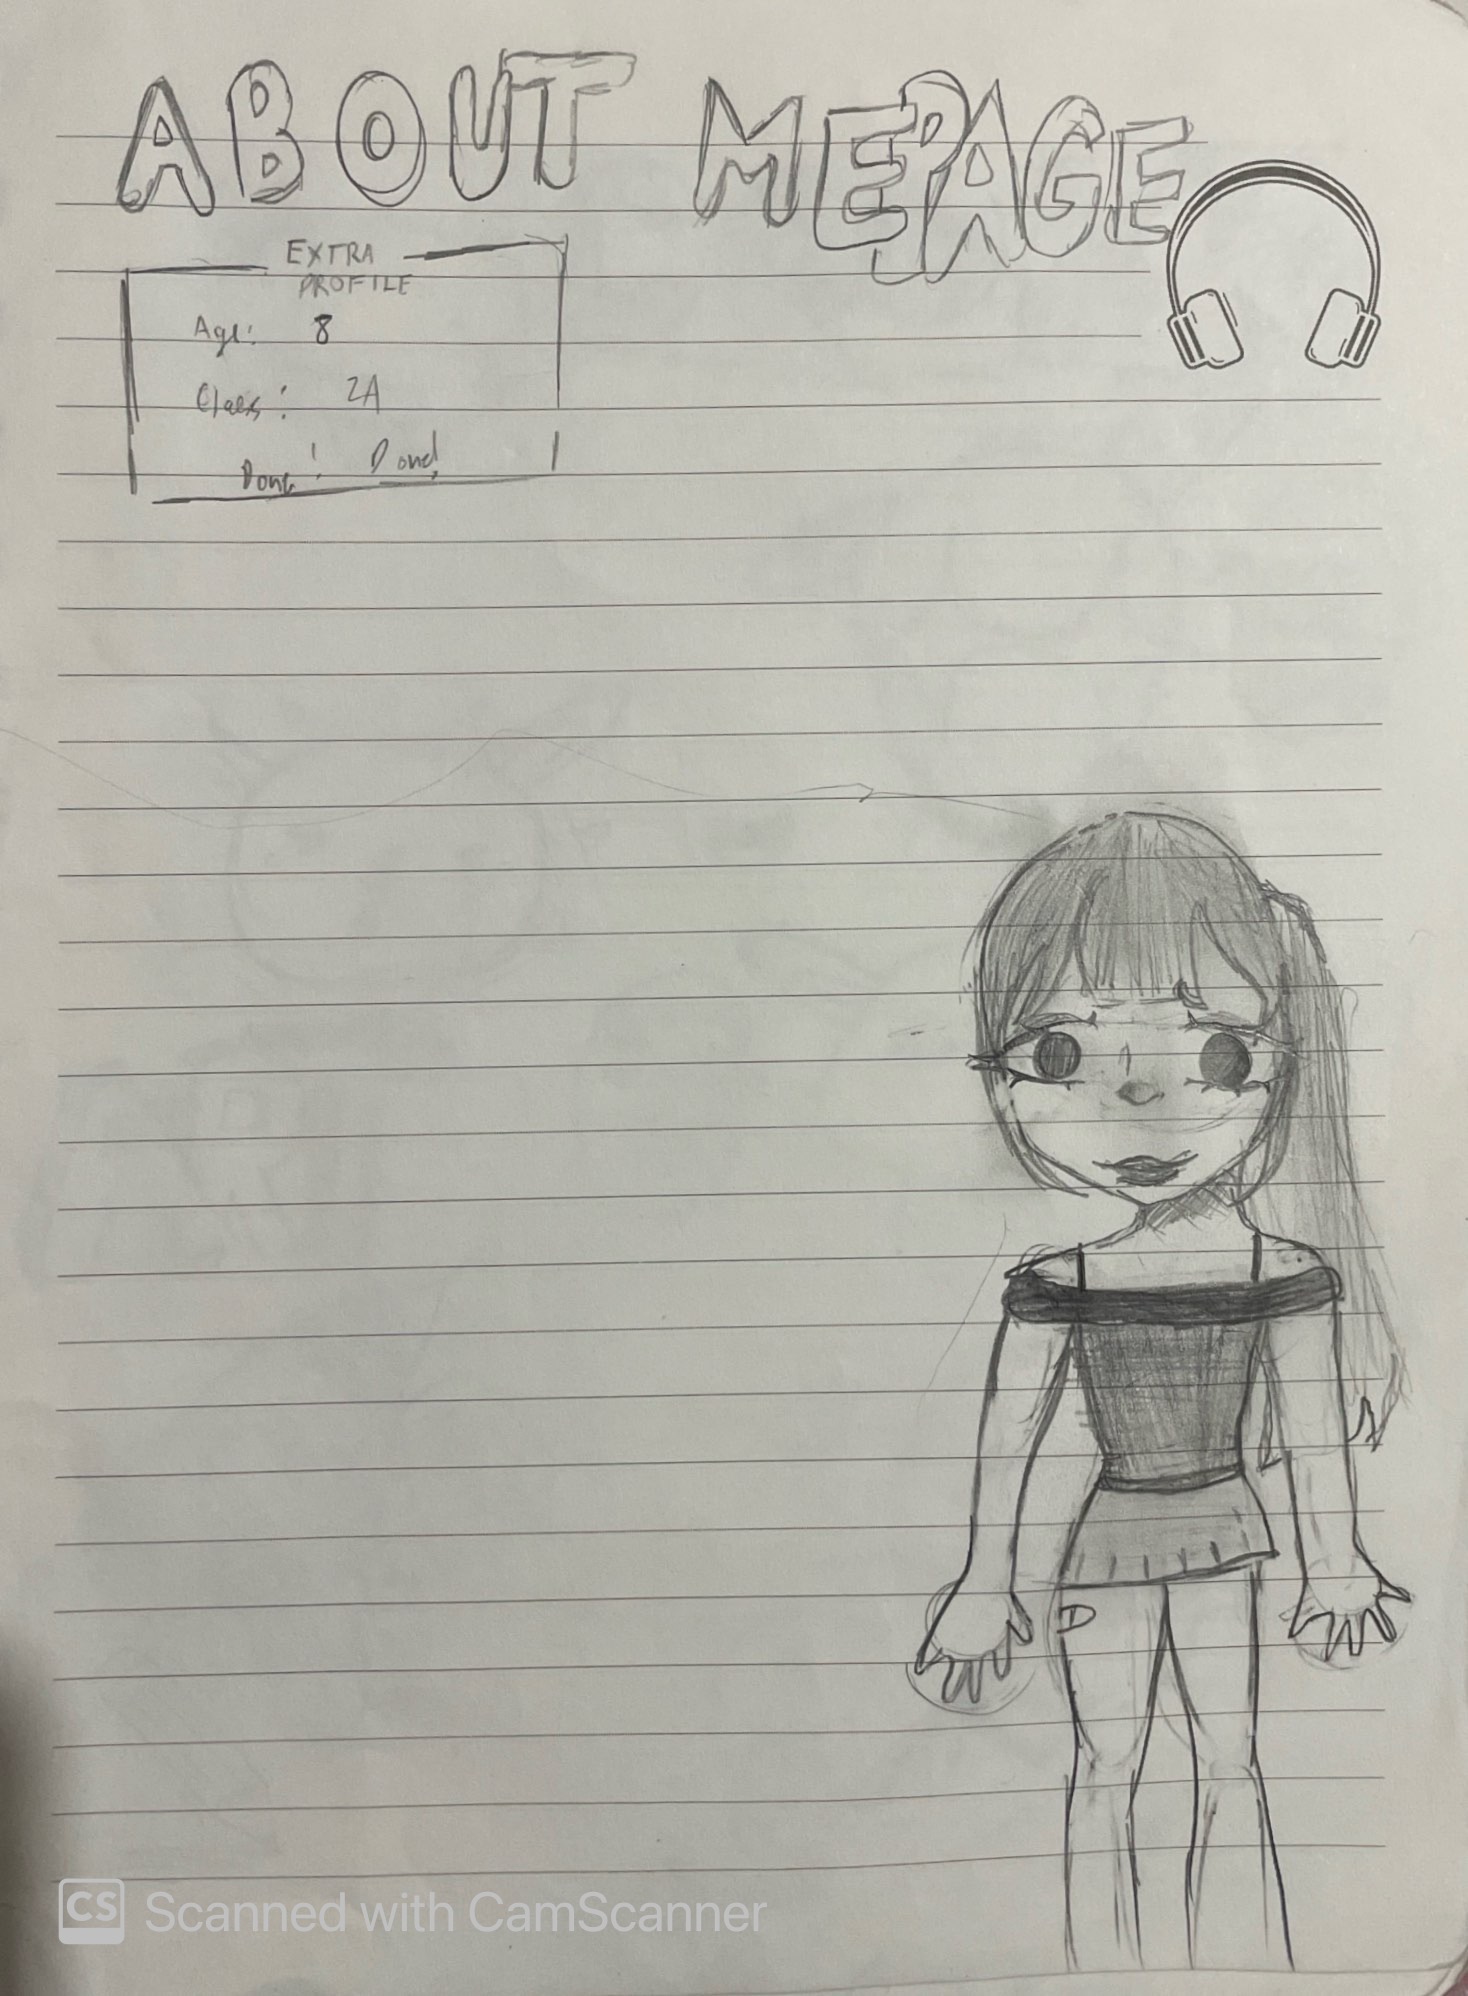 ABOUT MEPAGE
EXTRA
PROFILE
Age: 8
Class: 2A
Done! Done!
D
CS Scanned with CamScanner